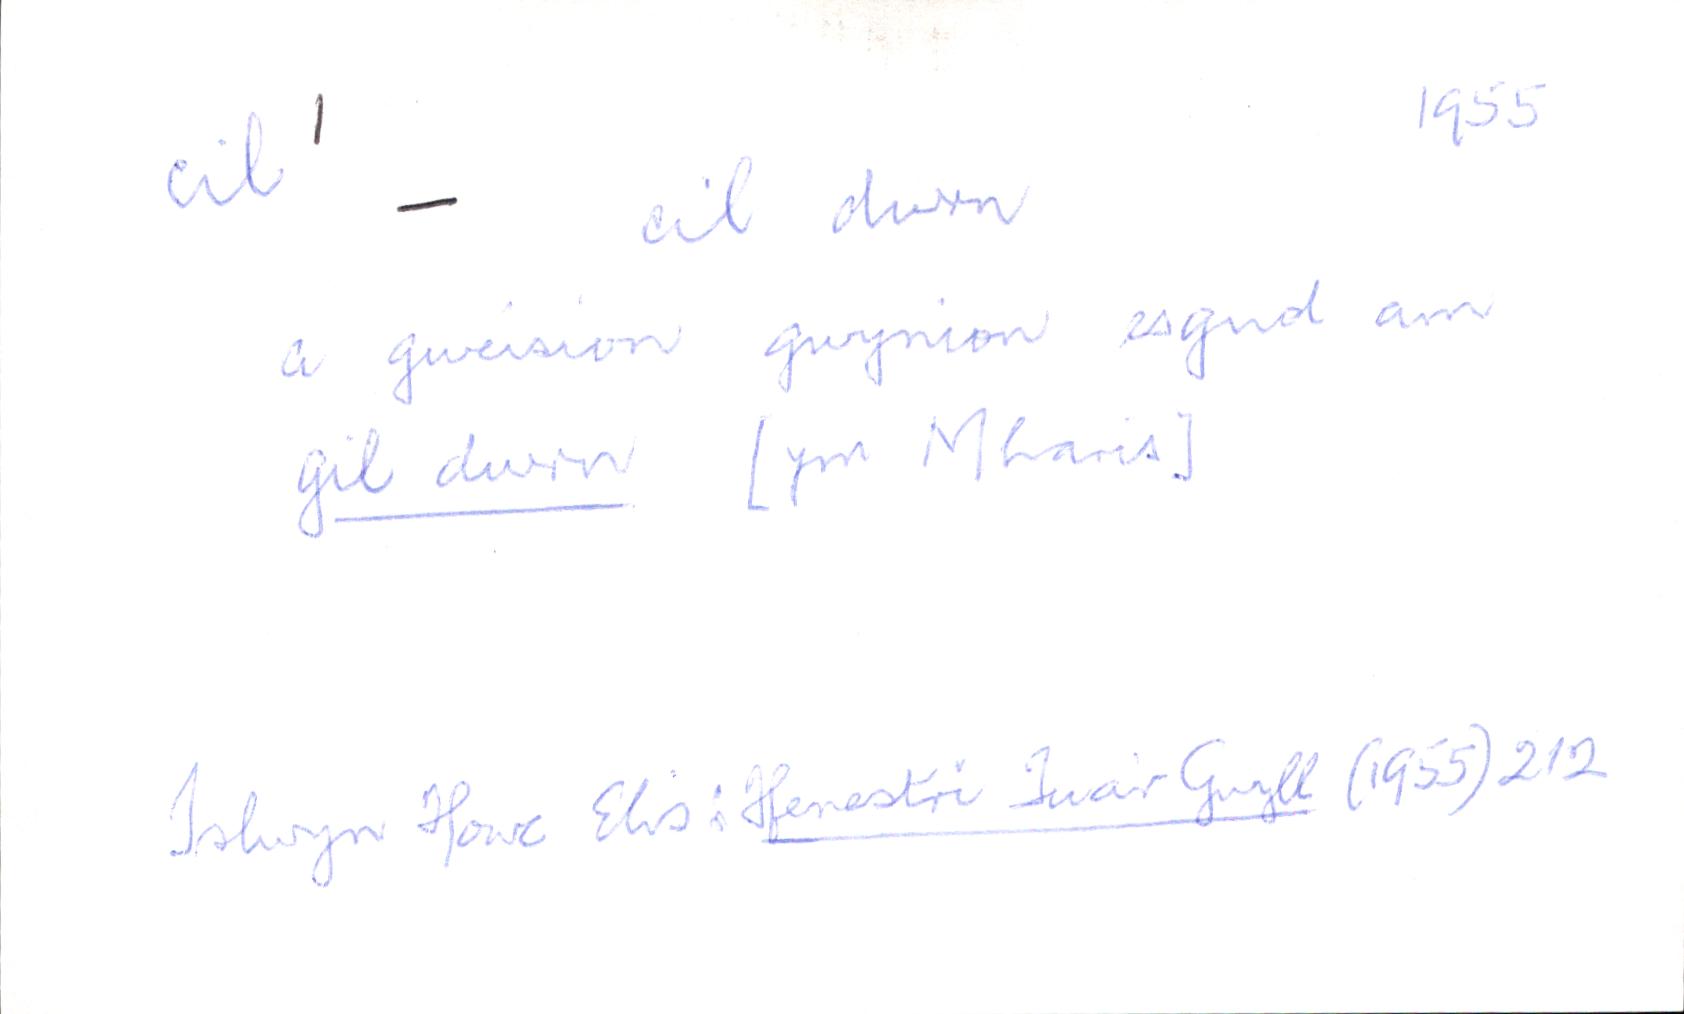 cil¹ — cil dwrn 1955
a gweision gwynion esgud am
gil dwrn [ym Mharis]
Islwyn Ffowc Elis: Ffenestri Tua'r Gwyll (1955) 212